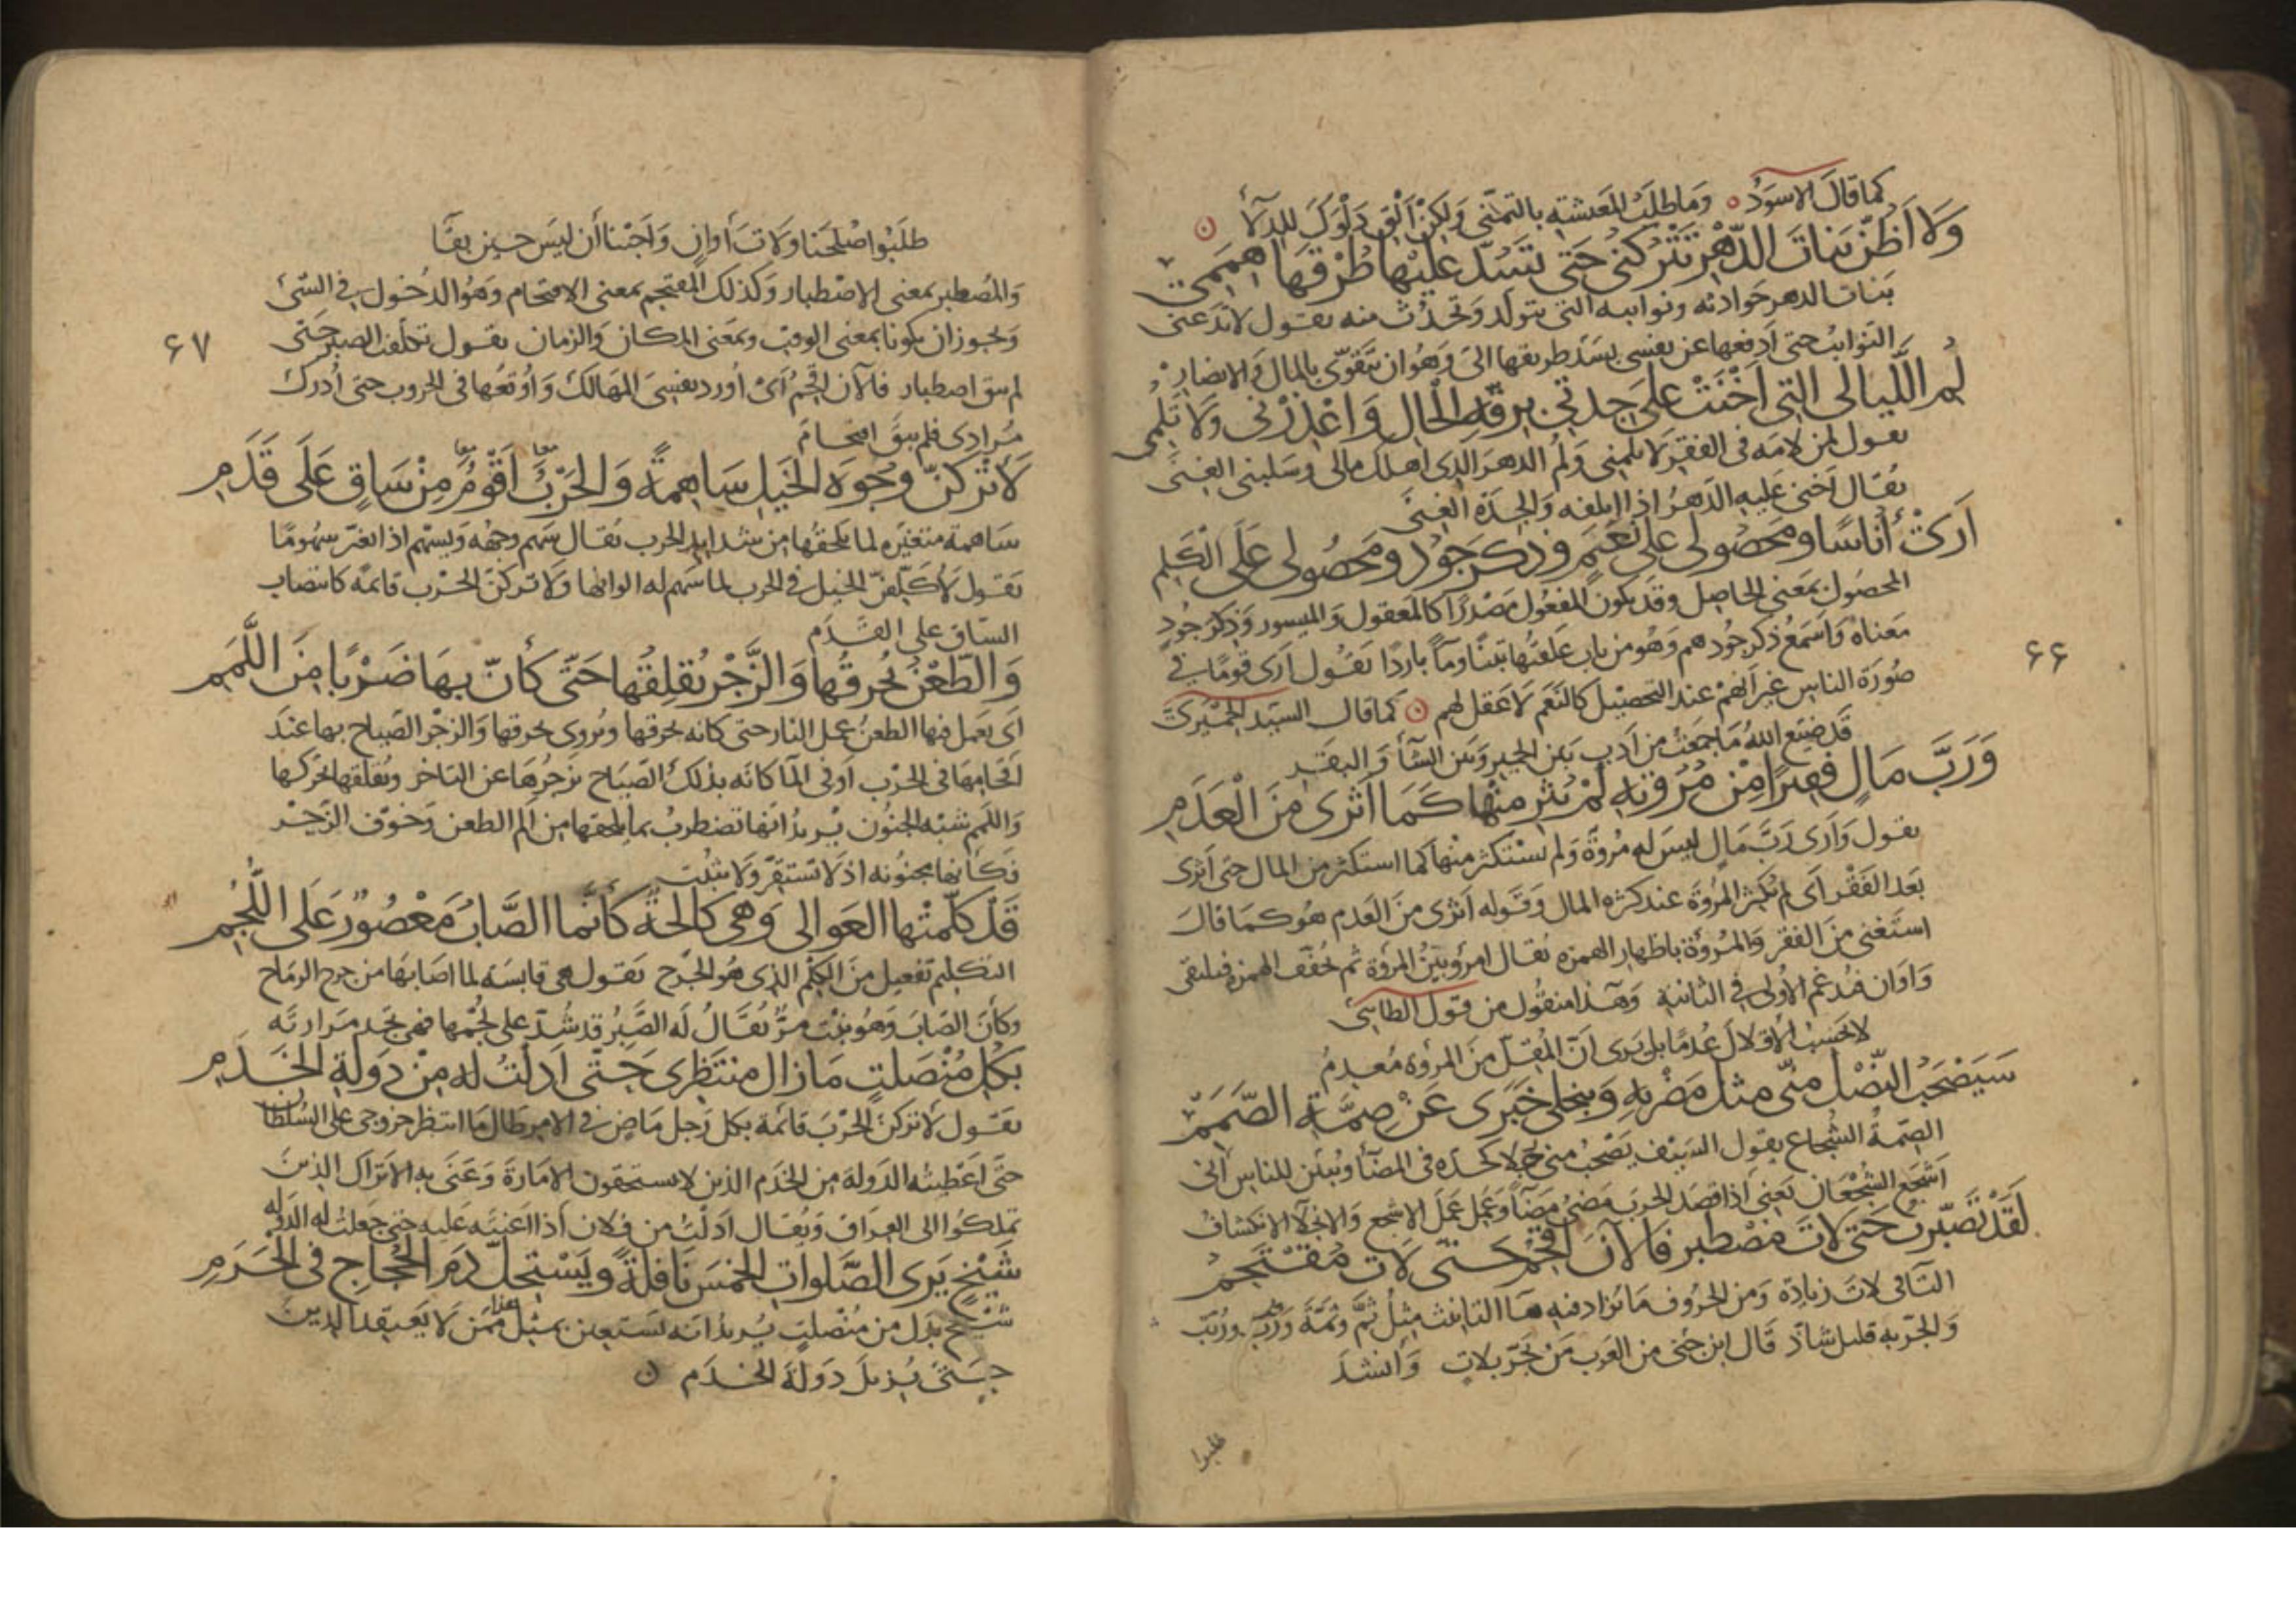 كما قال الاسود وما طلب المعيشة بالتمنى ولكن الق دلوك للدلآ
وَلَا اَظُنّ بَنَاتَ الدّهْرِ تَتْركنى حَتى تَسُدّ عَليْها طُرْقَهَا هِمَمِى
بنات الدهر حوادثه ونوايبه التى تتولد وتحدث منه يقول لا تدعنى
النوايب حتى ادفعها عن نفسى بسد طريقها الى وهو ان تتقوى بالمال والانصار
لُمِ اللّيالى التِى اَخْنَتْ عَلى جِدتى بِرقّةِ الْحَالِ وَاعْذِرْنى وَلَا تَلُمِ
يقول لمن لامه فى الفقر لا تلمنى ولم الدهر الذى اهلك مالى وسلبنى الغنى
يقال اخنى عليه الدهر اذا اتلفه والجدة الغنى
اَرَىْ أُنَاسًا ومَحصُولى عَلى نَعَمٍ وذِكرَ جُودٍ ومَحصُولى عَلَى الْكَلِمِ
المحصول بمعنى الحاصل وقد يكون المفعول مصدرا كالمعقول والميسور وذكر جود
معناه واسمع ذكر جودهم وهو من باب علفتها تبنا وماً باردا يقول ارى قوما فى
صورة الناس غير انهم عند التحصيل كالنعم لا عقل لهم كما قال السيد الحميرى
قد ضيع الله ما جمعت من ادب بين الحمير وبين الشآ والبقر
وَرَبَّ مَالٍ فقيرًا مِنْ مُرُوّتِهِ لَمْ يُثْرِ مِنْها كَمَا اَثْرى مِنَ الْعَدَمِ
يقول وارى رب مال ليس له مروة ولم يستكثر منها كما استكثر من المال حتى اثرى
بعد الفقر اى لم تكثر المروة عند كثرة المال وقوله اثرى من العدم هو كما قال
استغنى من الفقر والمروءة باظهار الهمزة يقال امرؤ بيّن المروة ثم تخفف الهمزة فيلتقى
واوان فتدغم الاولى فى الثانية وهذا منقول من قول الطائى
لا تحسب الاقلال عدما بل يرى ان المقل من المروة معدم
سَيَصْحَبُ النّصْل مِنّى مثلَ مَضْرِبهِ وَينجلى خَبَرى عَنْ صِمّةِ الصّمَمِ
الصمة الشجاع يقول السيف يصحب منى رجلا كحده فى المضآ ويبين للناس انى
اشجع الشجعان يعنى اذا قصد الحرب مضى مضآ وعمل عمل الاشجع والانجلآ الانكشاف
لَقَدْ تَصَبّرتُ حَتى لاتَ مُصْطبرٍ فَالآنَ اقْحُمُ حَتّى لَاتَ مُقْتَحَمِ
التآ فى لات زيادة ومن الحروف ما تزاد فيه هآ التانيث مثل ثمّ وثمّة وربّ وربّت
والجر به قليل شاذ قال ابن جنى من العرب من يجر بلات وانشد
طلبوا
٦٦
طلبوا صلحنا ولات أوان وأجبنا أن ليس حين بقآ
والمصطبر بمعنى الاصطبار وكذلك المقتحم بمعنى الاقتحام وهو الدخول فى الشئ
ويجوز ان يكونا بمعنى الوقت وبمعنى المكان والزمان يقول تكلفت الصبر حتى
لم يبق اصطبار فالآن اقحم اى اورد نفسى المهالك واوقعها فى الحروب حتى ادرك
مرادى فلم يبق اقتحام
٦٧
لَأتْركنّ وجُوهَ الخَيلِ سَاهِمةً وَالحَرْبُ اَقْوَمُ مِنْ سَاقٍ عَلَى قَدَمِ
ساهمة متغيره لما يلحقها من شدايد الحرب يقال سهم وجهه ويسهم اذا تغير سهوما
يقول لاكلفن الخيل فى الحرب لما تسهم له الوانها ولاتركن الحرب قائمة كانتصاب
الساق على القدم
وَالطّعْنُ يُحرِقُها وَالزَّجْر يُقلِقُها حَتّى كأنّ بِهَا ضَرْبًا مِنَ اللَّمَمِ
اى يعمل فيها الطعن عمل النار حتى كانه يحرقها ويروى يخرقها والزجر الصياح بها عند
اقحامها فى الحرب او فى المآ كانه بذلك الصياح يزجرها عن التاخر ويقلقها يحركها
واللمم شبه الجنون يريد انها تضطرب بما يلحقها من الم الطعن وخوف الزجر
فكأنها مجنونه اذ لا تستقر ولا تثبت
قَدْ كلّمتْها العَوالى وَهى كالِحةٌ كأنّما الصّابُ مَعْصُورٌ عَلَى اللُّجُمِ
التكليم تفعيل من الكلم الذى هو الجرح يقول هى عابسة لما اصابها من جرح الرماح
وكأن الصاب وهو نبت مرّ يقال له الصبر قد شد على لجمها فهى تجد مرارته
بكُلّ مُنْصَلتٍ مَا زال منتَظِرى حَتّى اَدلْتُ له مِنْ دَوْلةِ الخَدَمِ
يقول لاتركن الحرب قائمة بكل رجل ماض فى الامر طال ما انتظر خروجى على السلطان
حتى اعطيته الدولة من الخدم الذين لا يستحقون الامارة وعنى به الاتراك الذين
تملكوا الى العراق ويقال ادلت من فلان اذا اعنته عليه حتى جعلت له الدوله
شَيْخٍ يَرى الصّلواتِ الخمْسَ نَافلةً ويَسْتَحِلّ دَمَ الحُجّاجِ فى الحَرَمِ
شيخ بدل من منصلت يريد انه يستعين بمثل هذا ممن لا يعتقد الدين
حتى يزيل دولة الخدم